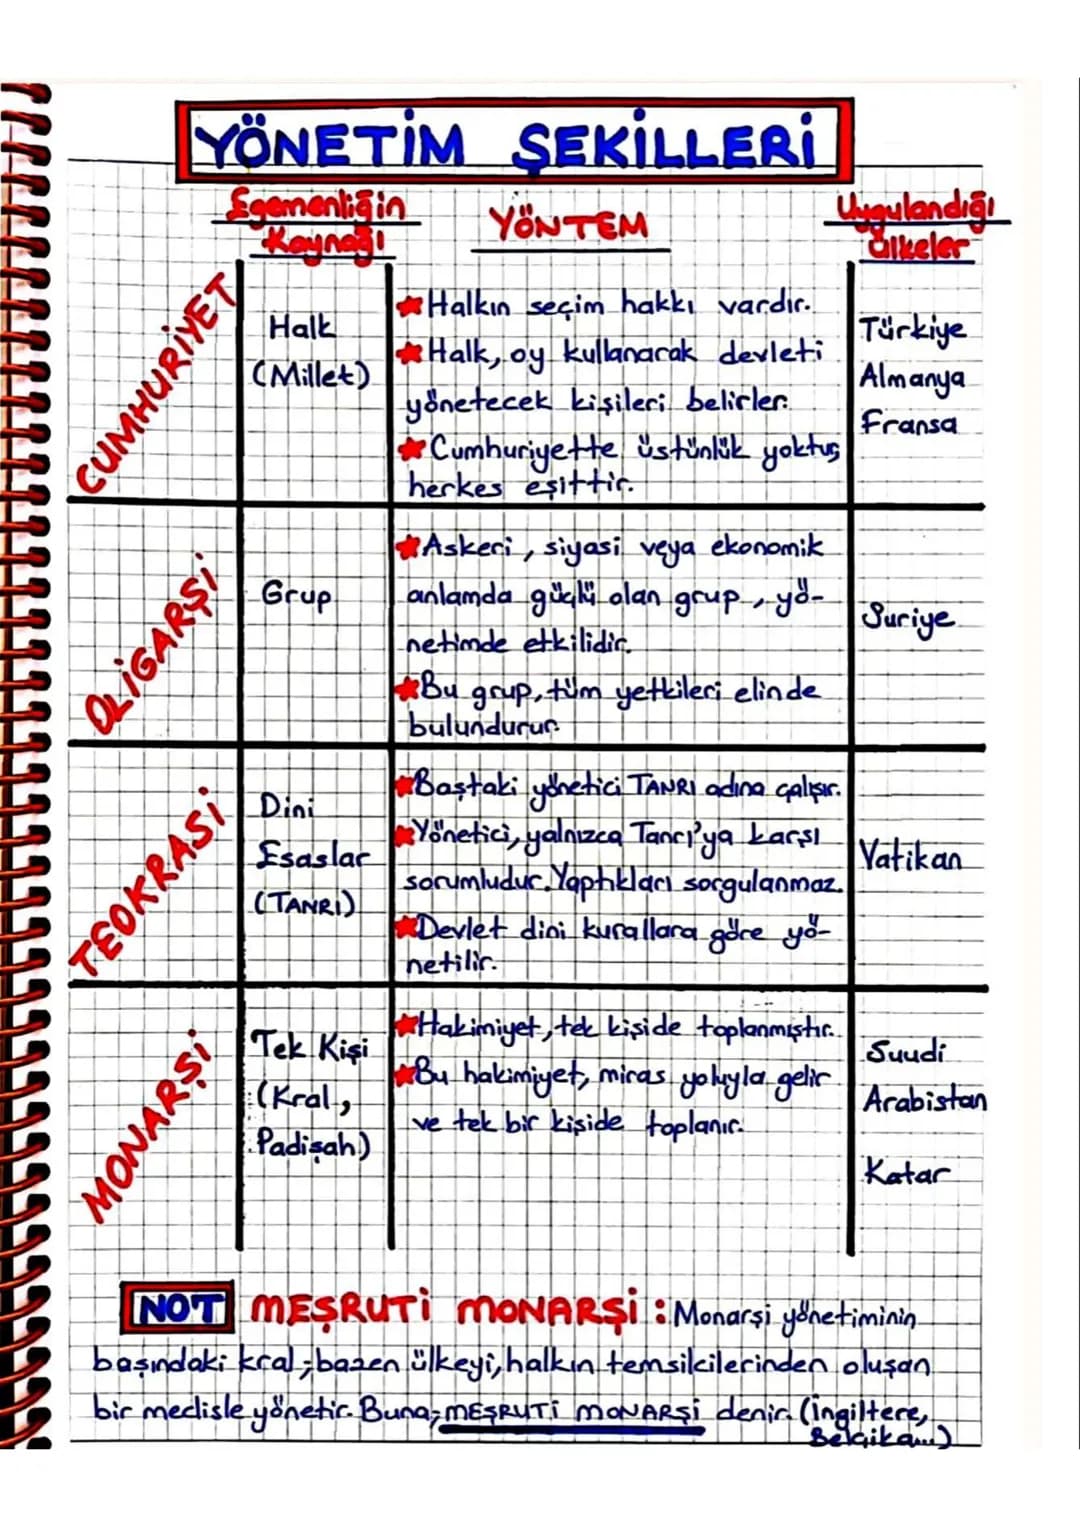 YÖNETİM ŞEKİLLERİ
Egemenliğin
Kaynağı
YÖNTEM
Uygulandığı
Ülkeler
CUMHURİYET
Halk
(Millet)
★Halkın seçim hakkı vardır.
★Halk, oy kullanarak devleti
yönetecek kişileri belirler.
★Cumhuriyette üstünlük yoktur,
herkes eşittir.
Türkiye
Almanya
Fransa
OLİGARŞİ
Grup
★Askeri, siyasi veya ekonomik
anlamda güçlü olan grup, yö-
netimde etkilidir.
★Bu grup, tüm yetkileri elinde
bulundurur.
Suriye
TEOKRASİ
Dini
Esaslar
(TANRI)
★Baştaki yönetici TANRI adına çalışır.
★Yönetici, yalnızca Tanrı'ya karşı
sorumludur. Yaptıkları sorgulanmaz.
★Devlet dini kurallara göre yö-
netilir.
Vatikan
MONARŞİ
Tek Kişi
(Kral,
Padişah)
★Hakimiyet, tek kişide toplanmıştır.
★Bu hakimiyet, miras yoluyla gelir
ve tek bir kişide toplanır.
Suudi
Arabistan
Katar
NOT MEŞRUTİ MONARŞİ : Monarşi yönetiminin
başındaki kral; bazen ülkeyi, halkın temsilcilerinden oluşan
bir meclisle yönetir. Buna; MEŞRUTİ MONARŞİ denir. (İngiltere,
Belçika...)